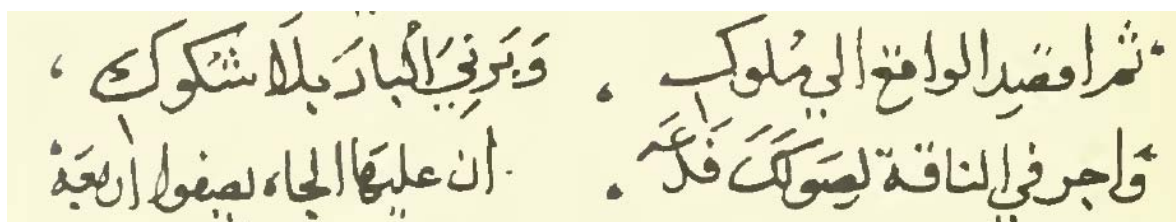 ثم اقصد الواقع الي ملوك . وَيَرني البار بلا شكوك
واجر في الناقة لصولك فدعه . ان عليها الجاه اربعة